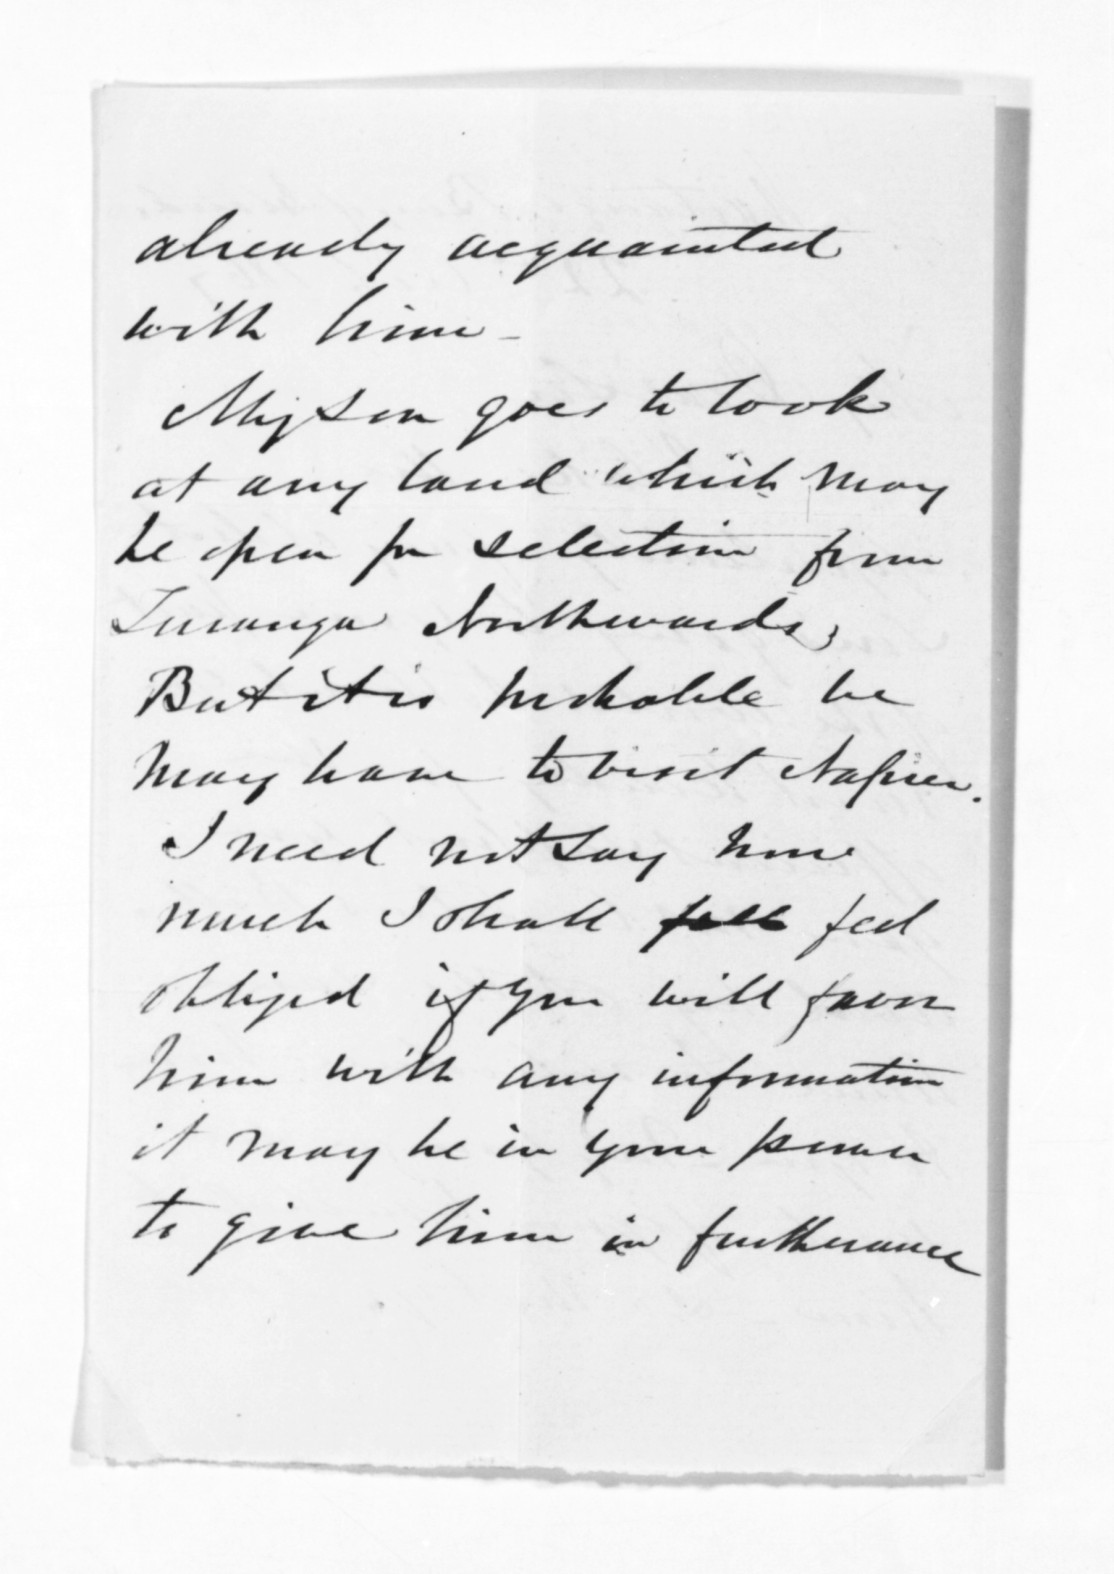 already acquainted
with him -
My son goes to look
at any land which may
be open for selection from
Turanga Northwards,
But it is probable he
may have to visit Napier.
I need not say how
much I shall feel
obliged if you will favor
him with any information
it may be in your power
to give him in furtherance